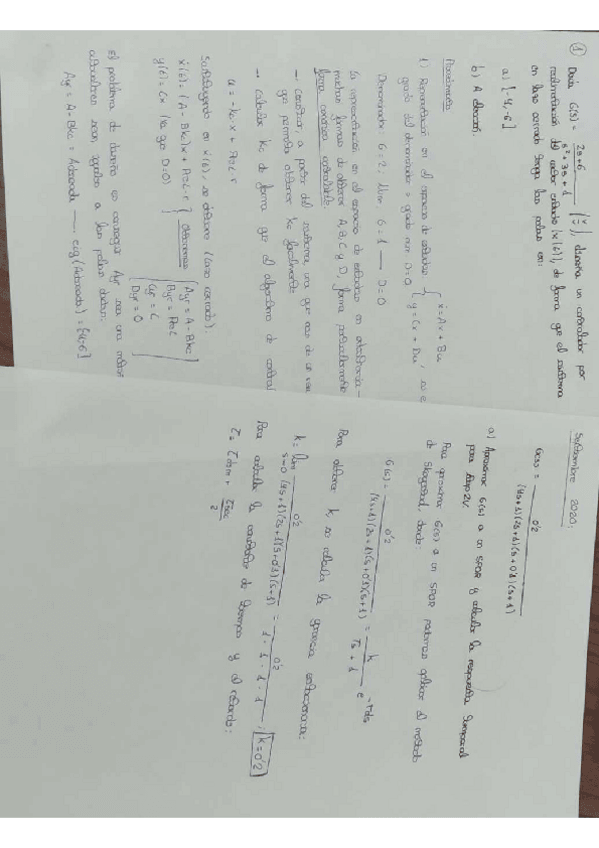 ① Dada G(s) = (2s+6)/(s²+3s+1) (Y/U), diseña un controlador por
realimentación del vector estado (x(t)), de forma que el sistema
en lazo cerrado tenga los polos en:
a) [-4, -6]
b) A elección.
Procedimiento
1) Representación en el espacio de estados: { ẋ = Ax + Bu
y = Cx + Du
grado del denominador > grado num: D=0
Denominador: G=2; Num G=1 → D=0
la representación en el espacio de estados
muchas formas de obtener A, B, C y D, forma
forma canónica controlable
→ Construir, a partir del sistema, una que
que permita obtener Kc fácilmente
→ Calcular Kc de forma que el algoritmo de control
u = -Kc·x +
Sustituyendo en ẋ(t), se obtiene (lazo cerrado):
ẋ(t) = (A - BKc)x +
y(t) = Cx (ya que D=0)
Af = A - BKc
Cf = C
Df = 0
El problema de diseño es conseguir Af sea una matriz
autovalores sean iguales a los polos dados:
Af = A - BKc = Adeseada → eig(Adeseada) = [4, 6]
Septiembre 2020:
G(s) = 0'2/((4s+1)(2s+1)(s+0'1)(s+1))
a) Aproximar G(s) a un SPOR y calcular la respuesta temporal
para
Para aproximar G(s) a un SPOR podemos aplicar el método
de Skogestad, donde:
G(s) = 0'2/((4s+1)(2s+1)(s+0'1)(s+1)) = k/(Ts+1) e^(-Tds)
Para obtener k, se calcula la ganancia estacionaria:
k = lim s→0 0'2/((4s+1)(2s+1)(s+0'1)(s+1)) = 0'2/(1·1·1·1), k=0'2
Para calcular la constante de tiempo y el retardo:
τ = τdom + τsec/2